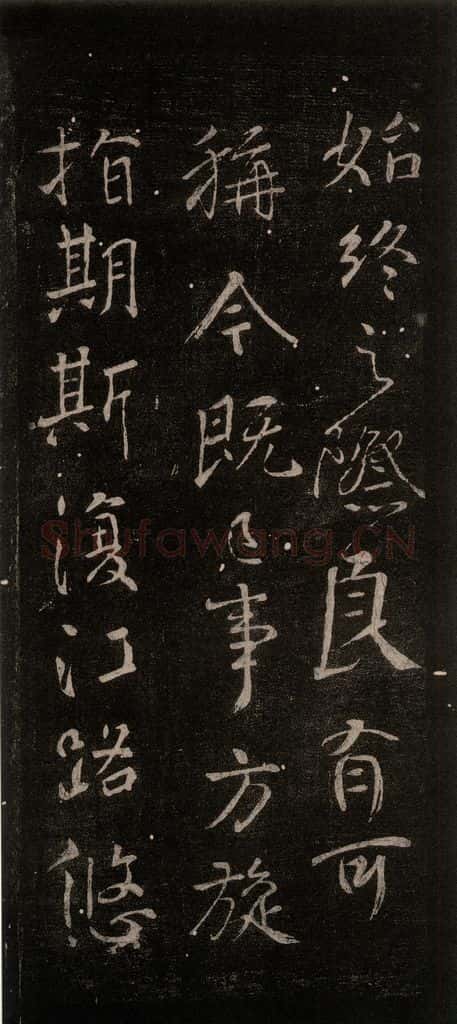 始终之際良有可
稱今既已事方旋
指期斯復江路悠
Shufawang.CN